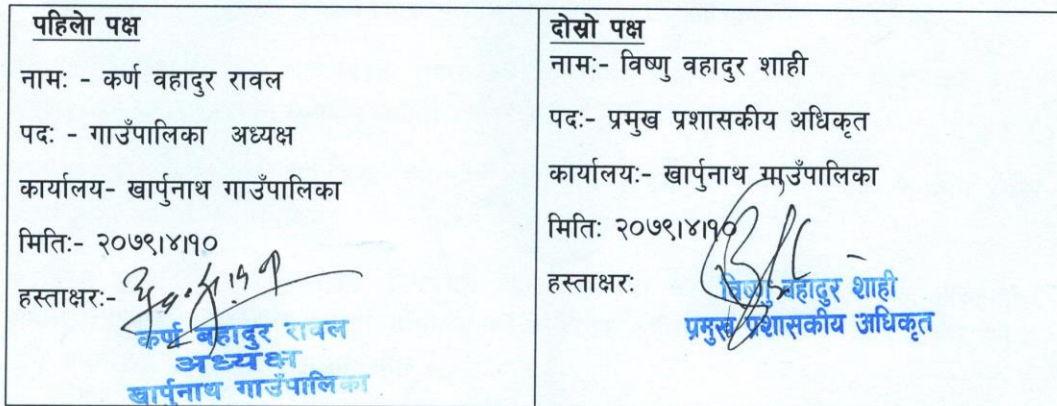 पहिलो पक्ष
नामः - कर्ण वहादुर रावल
पदः - गाउँपालिका अध्यक्ष
कार्यालय- खार्पुनाथ गाउँपालिका
मितिः- २०७९।४।१०
हस्ताक्षरः-
कर्ण बहादुर रावल
अध्यक्ष
खार्पुनाथ गाउँपालिका
दोस्रो पक्ष
नामः- विष्णु वहादुर शाही
पदः- प्रमुख प्रशासकीय अधिकृत
कार्यालयः- खार्पुनाथ गाउँपालिका
मितिः २०७९।४।१०
हस्ताक्षरः
विष्णु बहादुर शाही
प्रमुख प्रशासकीय अधिकृत